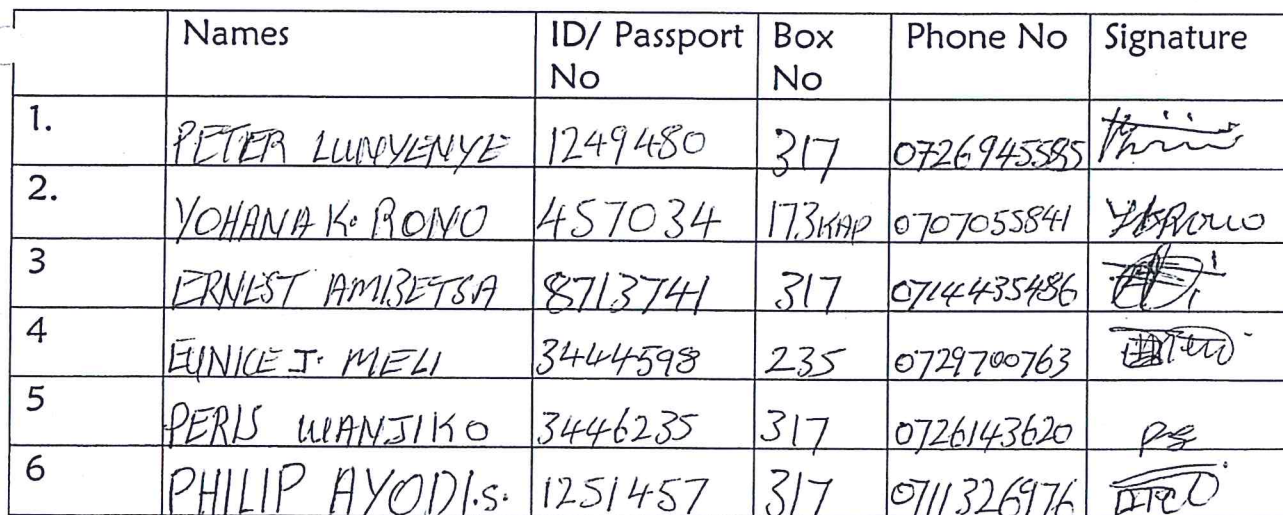 Names ID/ Passport No Box No Phone No Signature
1. PETER LUNYENYE 1249480 317 0726945585
2. YOHANA K. RONO 457034 173KAP 0707055841 YKRono
3 ERNEST AMBETSA 8713741 317 0714435486
4 EUNICE J. MELI 3444598 235 0729700763
5 PERIS WANJIKO 3446235 317 0726143620
6 PHILIP AYODI.S. 1251457 317 0711326976